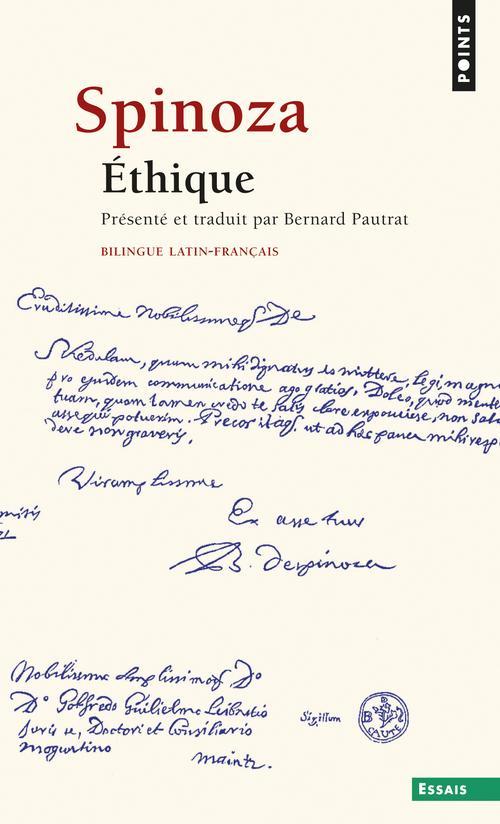 POINTS
Spinoza
Éthique
Présenté et traduit par Bernard Pautrat
BILINGUE LATIN-FRANÇAIS
Eruditissime Nobilissimeq De
Schedulam, quam mihi dignatus es mittere, legi, magna
pro ejusdem communicatione ago gratias. Doleo, quod mente
tuam, quam tamen credo te satis clare exposuisse, non
assequi potuerim. Precor itaq ut ad hæc pauca mihi resp
deve non graveris.
Viramplissime
Ex asse tuus
B. despinoza
Nobilissimo Amplissimoq Do
Do Gotfredo Guilielmo Leibnitio
Juris u, Doctori et Consiliario
Moguntino
Maintz.
Sigillum
CAUTE
ESSAIS